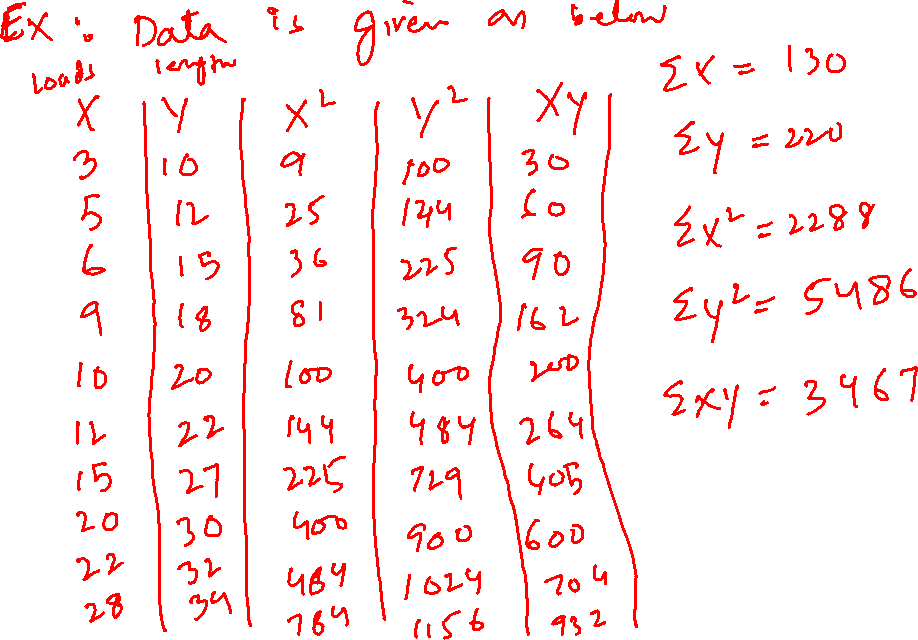 Ex: Data is given as below
loads length
X Y X² Y² XY
3 10 9 100 30
5 12 25 144 60
6 15 36 225 90
9 18 81 324 162
10 20 100 400 200
12 22 144 484 264
15 27 225 729 405
20 30 400 900 600
22 32 484 1024 704
28 34 784 1156 932
ΣX = 130
Σy = 220
Σx² = 2288
Σy² = 5486
Σxy = 3467